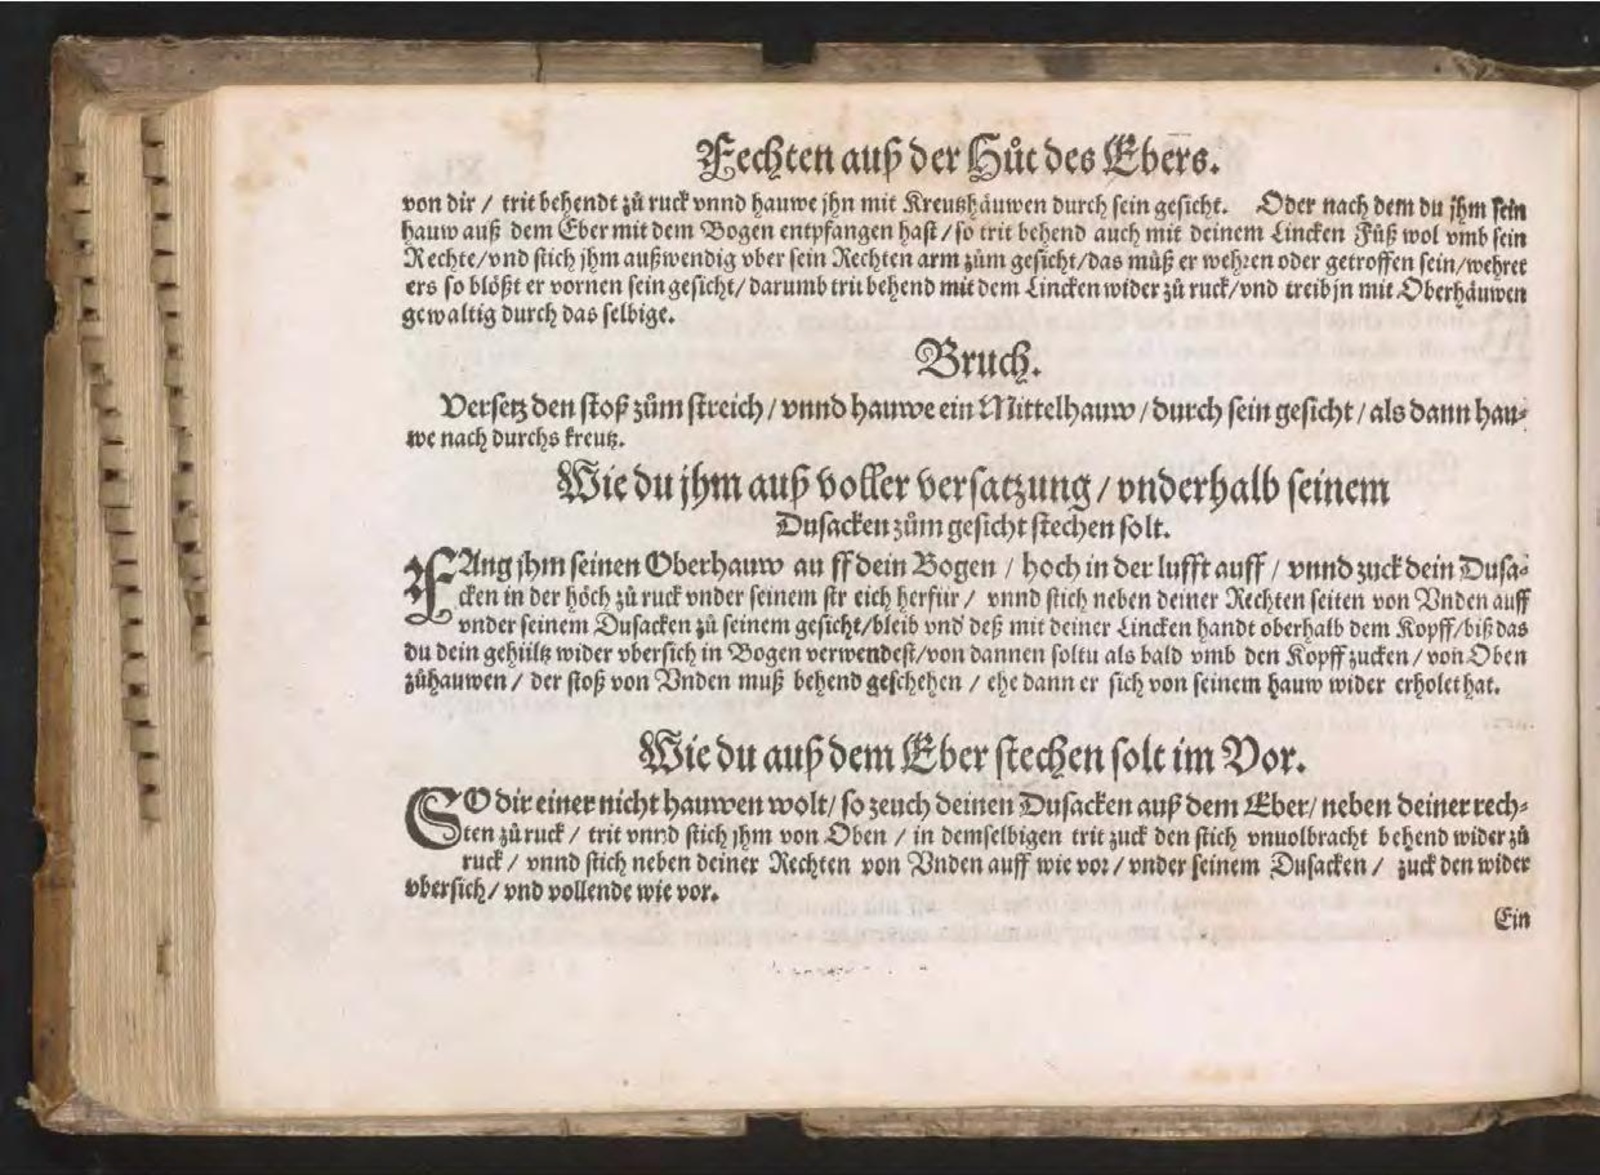 Fechten auß der Hůt des Ebers.
von dir / trit behendt zů ruck vnnd hauwe jhn mit Kreutzhäuwen durch sein gesicht. Oder nach dem du jhm sein
hauw auß dem Eber mit dem Bogen entpfangen hast / so trit behend auch mit deinem Lincken Fůß wol vmb sein
Rechte/vnd stich jhm außwendig vber sein Rechten arm zům gesicht/das můß er wehren oder getroffen sein/wehret
ers so blößt er vornen sein gesicht/ darumb trit behend mit dem Lincken wider zů ruck/vnd treib jn mit Oberhäuwen
gewaltig durch das selbige.
Bruch.
Versetz den stoß zům streich / vnnd hauwe ein Mittelhauw / durch sein gesicht / als dann hau-
we nach durchs kreutz.
Wie du jhm auß voller versatzung / vnderhalb seinem
Dusacken zům gesicht stechen solt.
FAng jhm seinen Oberhauw au ff dein Bogen / hoch in der lufft auff / vnnd zuck dein Dusa-
cken in der höch zů ruck vnder seinem str eich herfür / vnnd stich neben deiner Rechten seiten von Vnden auff
vnder seinem Dusacken zů seinem gesicht/bleib vnd deß mit deiner Lincken handt oberhalb dem Kopff/biß das
du dein gehültz wider vbersich in Bogen verwendest/von dannen soltu als bald vmb den Kopff zucken / von Oben
zůhauwen / der stoß von Vnden muß behend geschehen / ehe dann er sich von seinem hauw wider erholet hat.
Wie du auß dem Eber stechen solt im Vor.
SO dir einer nicht hauwen wolt/ so zeuch deinen Dusacken auß dem Eber/ neben deiner rech-
ten zů ruck / trit vnnd stich jhm von Oben / in demselbigen trit zuck den stich vnuolbracht behend wider zů
ruck / vnnd stich neben deiner Rechten von Vnden auff wie vor / vnder seinem Dusacken / zuck den wider
vbersich/ vnd vollende wie vor.
Ein